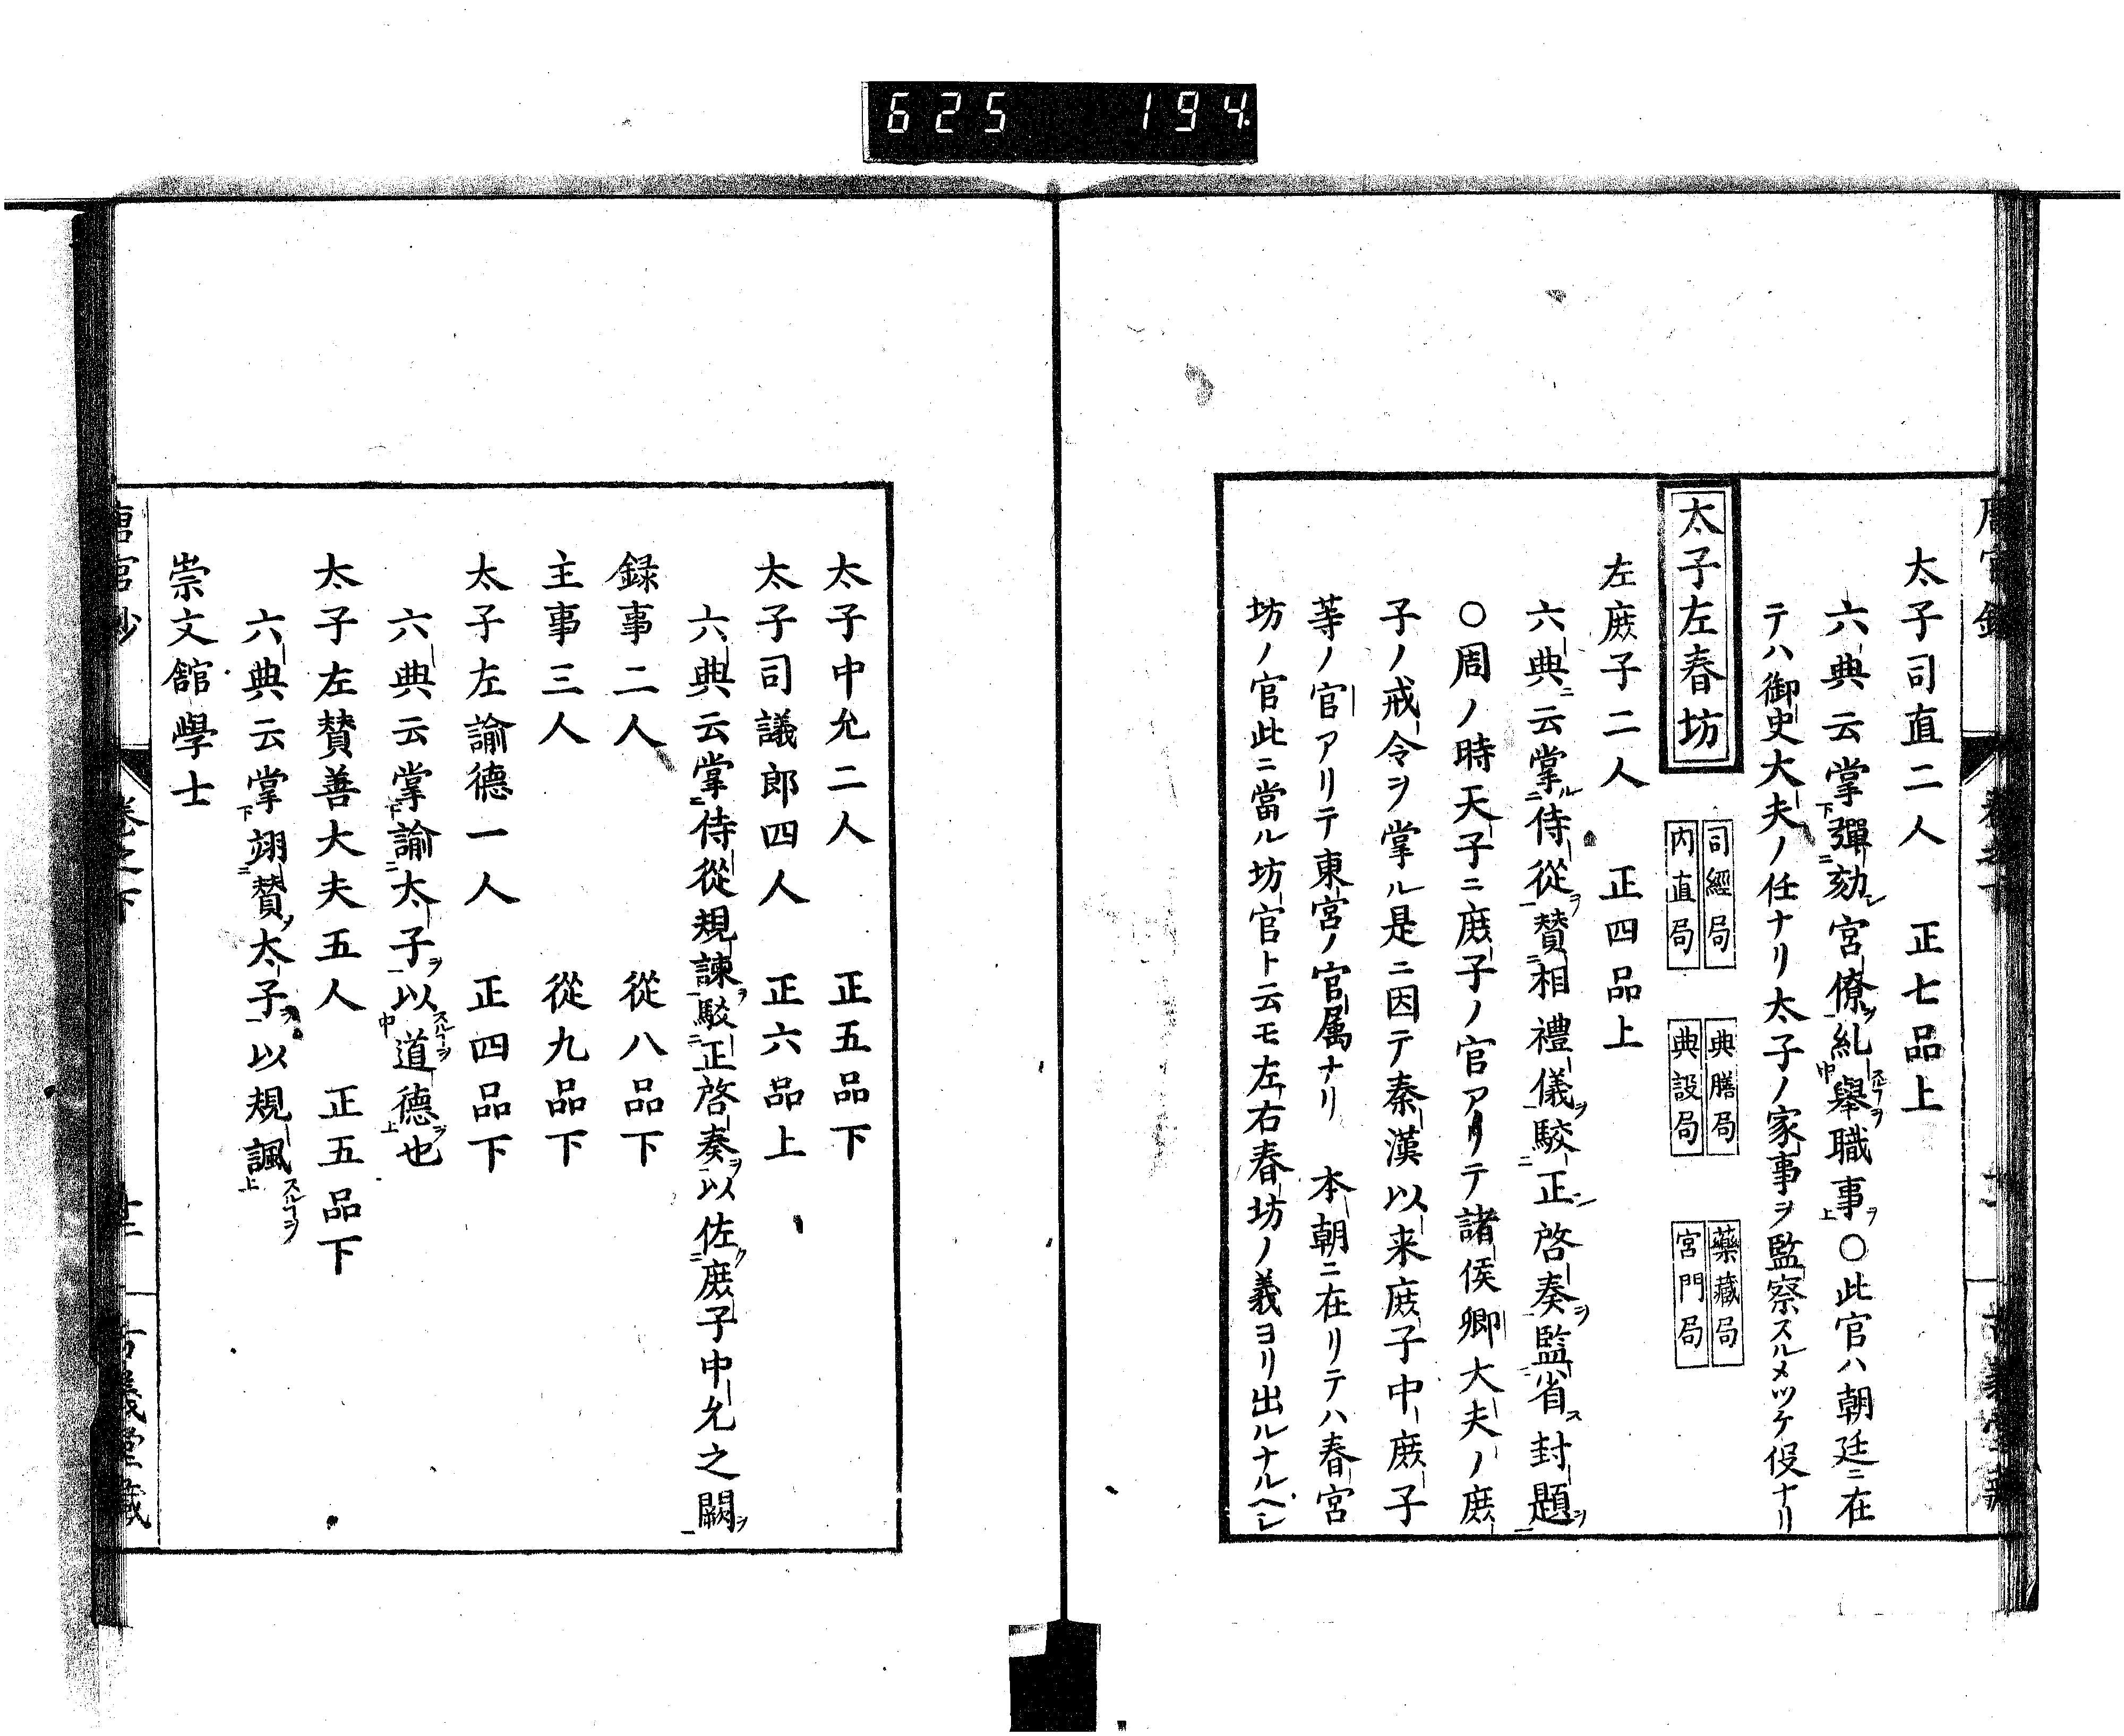 625 194
太子司直二人 正七品上
六典云掌彈劾宮僚糺舉職事〇此官ハ朝廷ニ在
テハ御史大夫ノ任ナリ太子ノ家事ヲ監察スルメツケ役ナリ
太子左春坊
司經局 典膳局 藥藏局
内直局 典設局 宮門局
左庶子二人 正四品上
六典云掌侍從賛相禮儀駮正啓奏監省封題
〇周ノ時天子ニ庶子ノ官アリテ諸侯卿大夫ノ庶
子ノ戒令ヲ掌ル是ニ因テ秦漢以来庶子中庶子
等ノ官アリテ東宮ノ官属ナリ 本朝ニ在リテハ春宮
坊ノ官此ニ當ル坊官ト云モ左右春坊ノ義ヨリ出ルナルヘシ
太子中允二人 正五品下
太子司議郎四人 正六品上
六典云掌侍從規諫駮正啓奏以佐庶子中允之闕
録事二人 從八品下
主事三人 從九品下
太子左諭德一人 正四品下
六典云掌諭太子以道德也
太子左賛善大夫五人 正五品下
六典云掌翊賛太子以規諷
崇文館學士
唐官鈔 卷之下